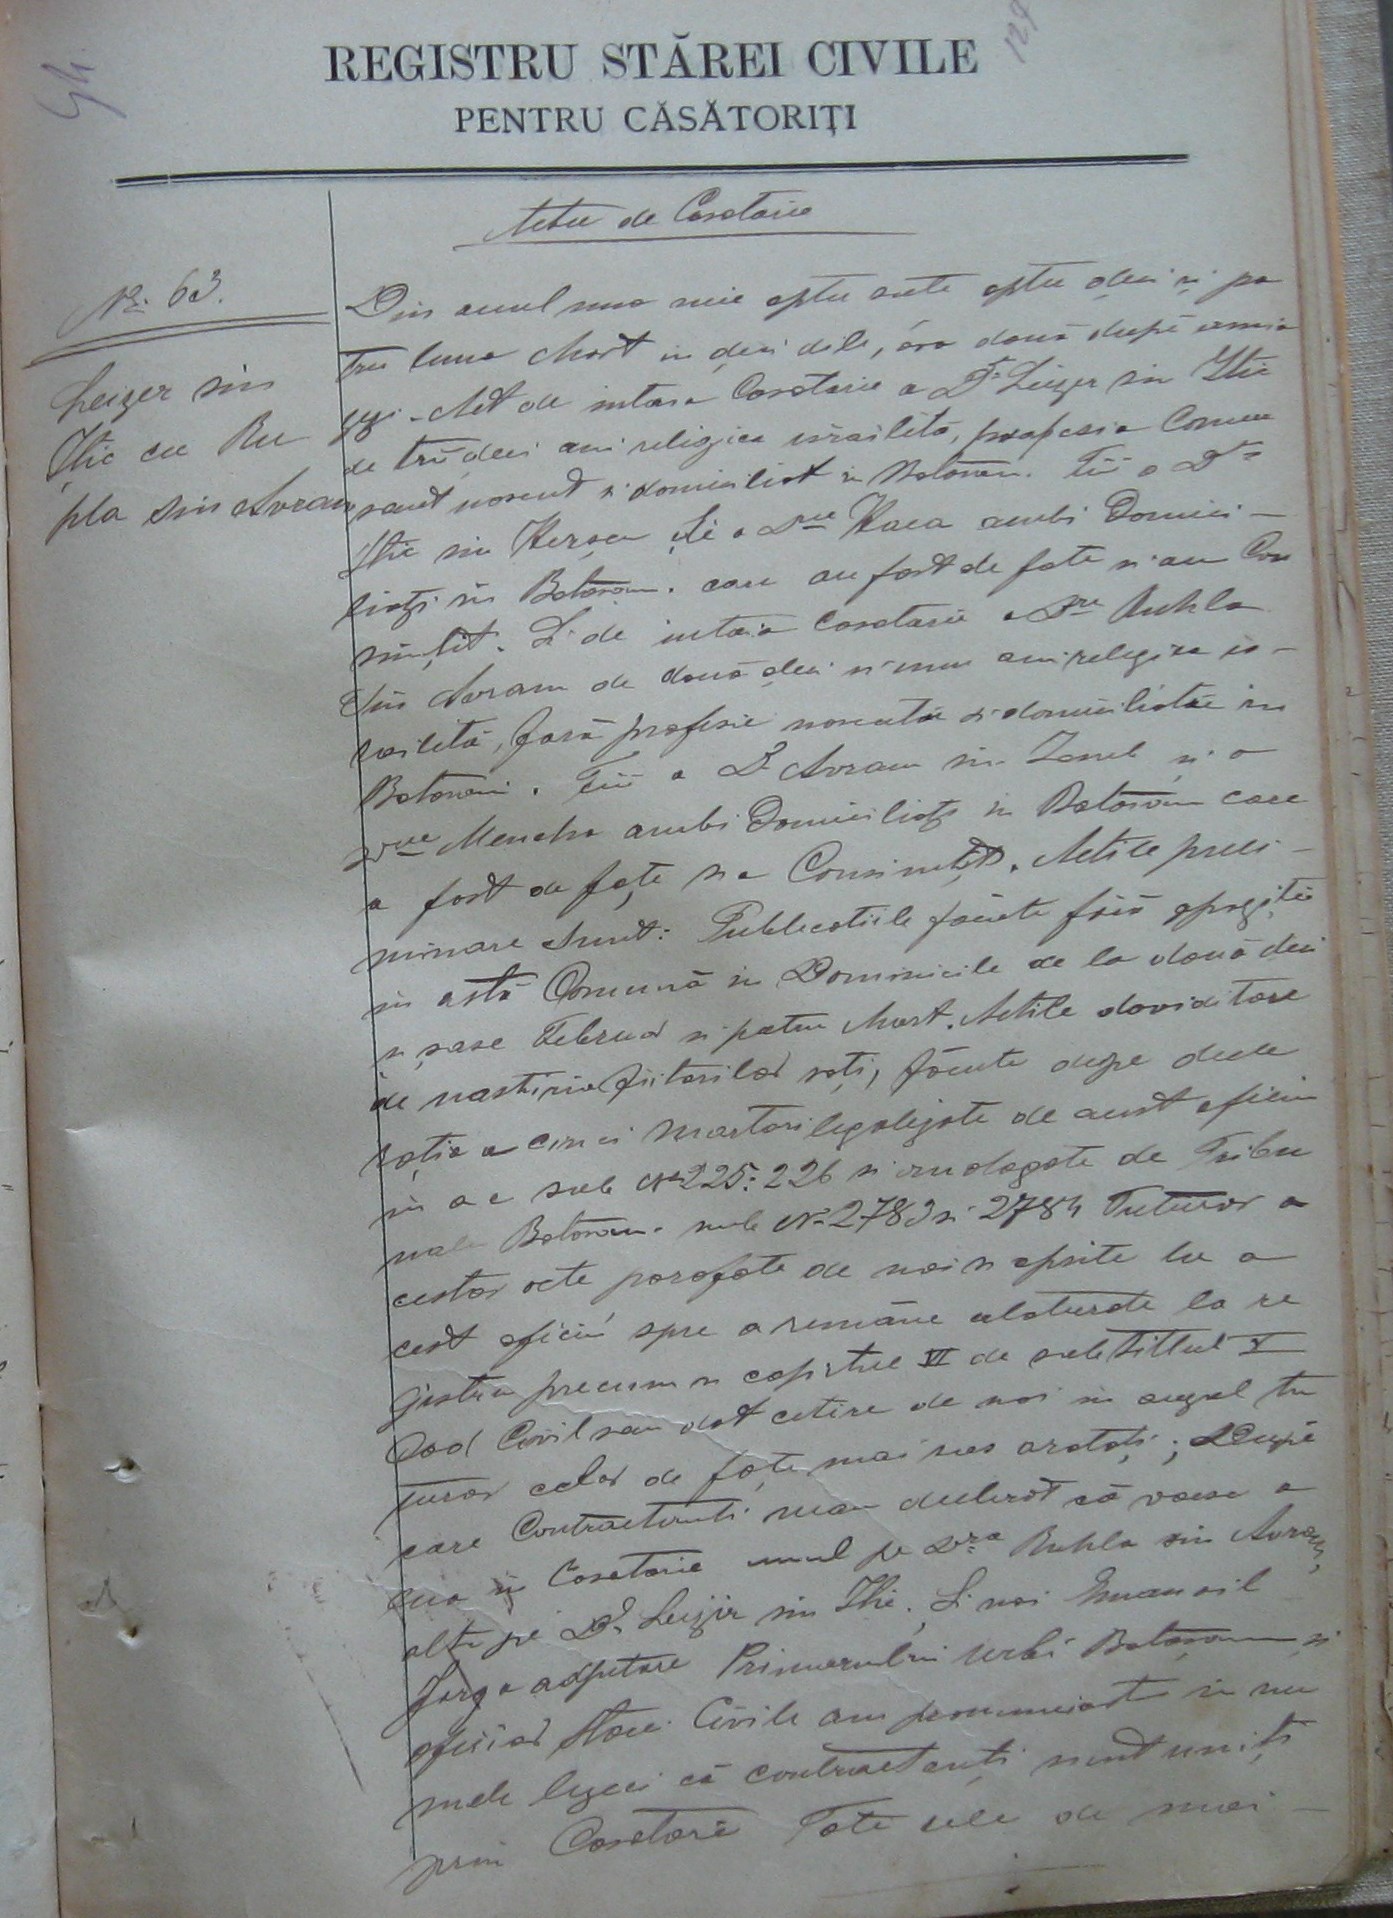 129
REGISTRU STĂREI CIVILE
PENTRU CĂSĂTORIȚI
Actu de Casatorie
No 63.
Leizer sin
Ițic cu Ru
pla sin Avram
Din anul una mie optu sute optu deci și pa
tru luna Mart in deci dile, óra două dupĕ amia
zi. Act de intaia Casatorie a Dl Leizer sin Itic
de trii deci ani religiea israilită, profesia Comer
sant nascut si domiciliat in Botosani. Fiĭ a Dlui
Itic sin Herscu și a Dnei Haea ambi Domici-
liați in Botosani. care au fost de fate si au Con
simțit. Și de intaia casatorie a Dnei Ruhla
sin Avram de două deci si unu ani religiea is-
railită, fară profesie nascută si domiciliată in
Botosani. Fiĭ a D. Avram sin Ianul și a
Dnei Mencha ambi Domiciliați in Botosani care
a fost de fațe si a Consimțit. Actile preli-
minare sunt: Publicatiile făcute fără opozițĭe
in astă Comună in Dominicile de la două deci
si șase Februar si patru Mart. Actile doviditoare
de nasterea fiitorilor soți, făcute dupe decla
rația a cinci Martori legalizate de acest oficiu
in a c sub No 225: 226 si omologate de Tribu
nalu Botosani sub No 2783 si 2784 Tuturor a
cestor acte parafate de noi si oprite la a
cest oficiu spre a remâne alaturate la re
gistru precum si capitul VI de sub titlul V
Cod Civil sau dat citire de noi in auzul tu
turor celor de fațe mai sus aratați; Dupĕ
care Contractenti neau declarat că voesc a
lua in Casatorie unul pe Dna Ruhla sin Avram,
alta pe D. Leizir sin Itic. Și noi Emanoil
Jorga adjutore Primarului urbi Botosani și
oficier Starei Civile am pronunciat in nu
mele legei că contractanți sunt uniți
prin Casatorie Tote cele de mai-